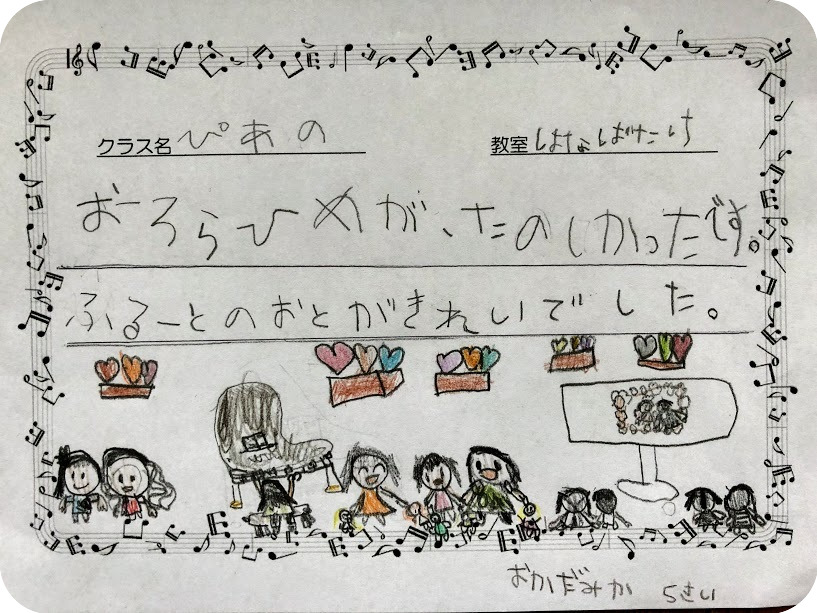 クラス名 ぴあの
教室 はなしばたけ
おーろらひめが、たのしかったです。
ふるーとのおとがきれいでした。
おかだみか 5さい